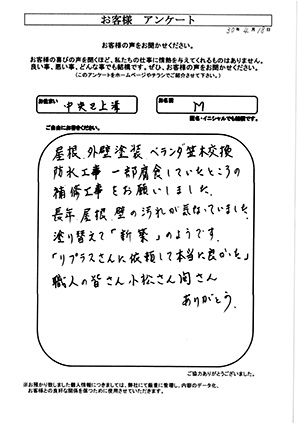 お客様 アンケート
30年4月18日
お客様の声をお聞かせください。
お客様の喜びの声を聞くほど、私たちの仕事に情熱を与えてくれるものはありません。
良い事、悪い事、どんな事でも結構です。ぜひ、お客様の声をお聞かせください。
(このアンケートをホームページやチラシでご紹介させて下さい。)
お住まい
中央区上溝
お名前
M
匿名・イニシャルでも結構です。
ご自由にお書きください。
屋根、外壁塗装 ベランダ笠木交換
防水工事 一部腐食していたところの
補修工事をお願いしました。
長年 屋根、壁の汚れが気になっていました。
塗り替えて「新築」のようです。
「リプラスさんに依頼して本当に良かった」
職人の皆さん 小松さん 関さん
ありがとう。
ご協力ありがとうございました。
※お預かり致しました個人情報につきましては、弊社にて厳重に管理し、内容のデータ化、
お客様との良好な関係を保つために使用させていただきます。